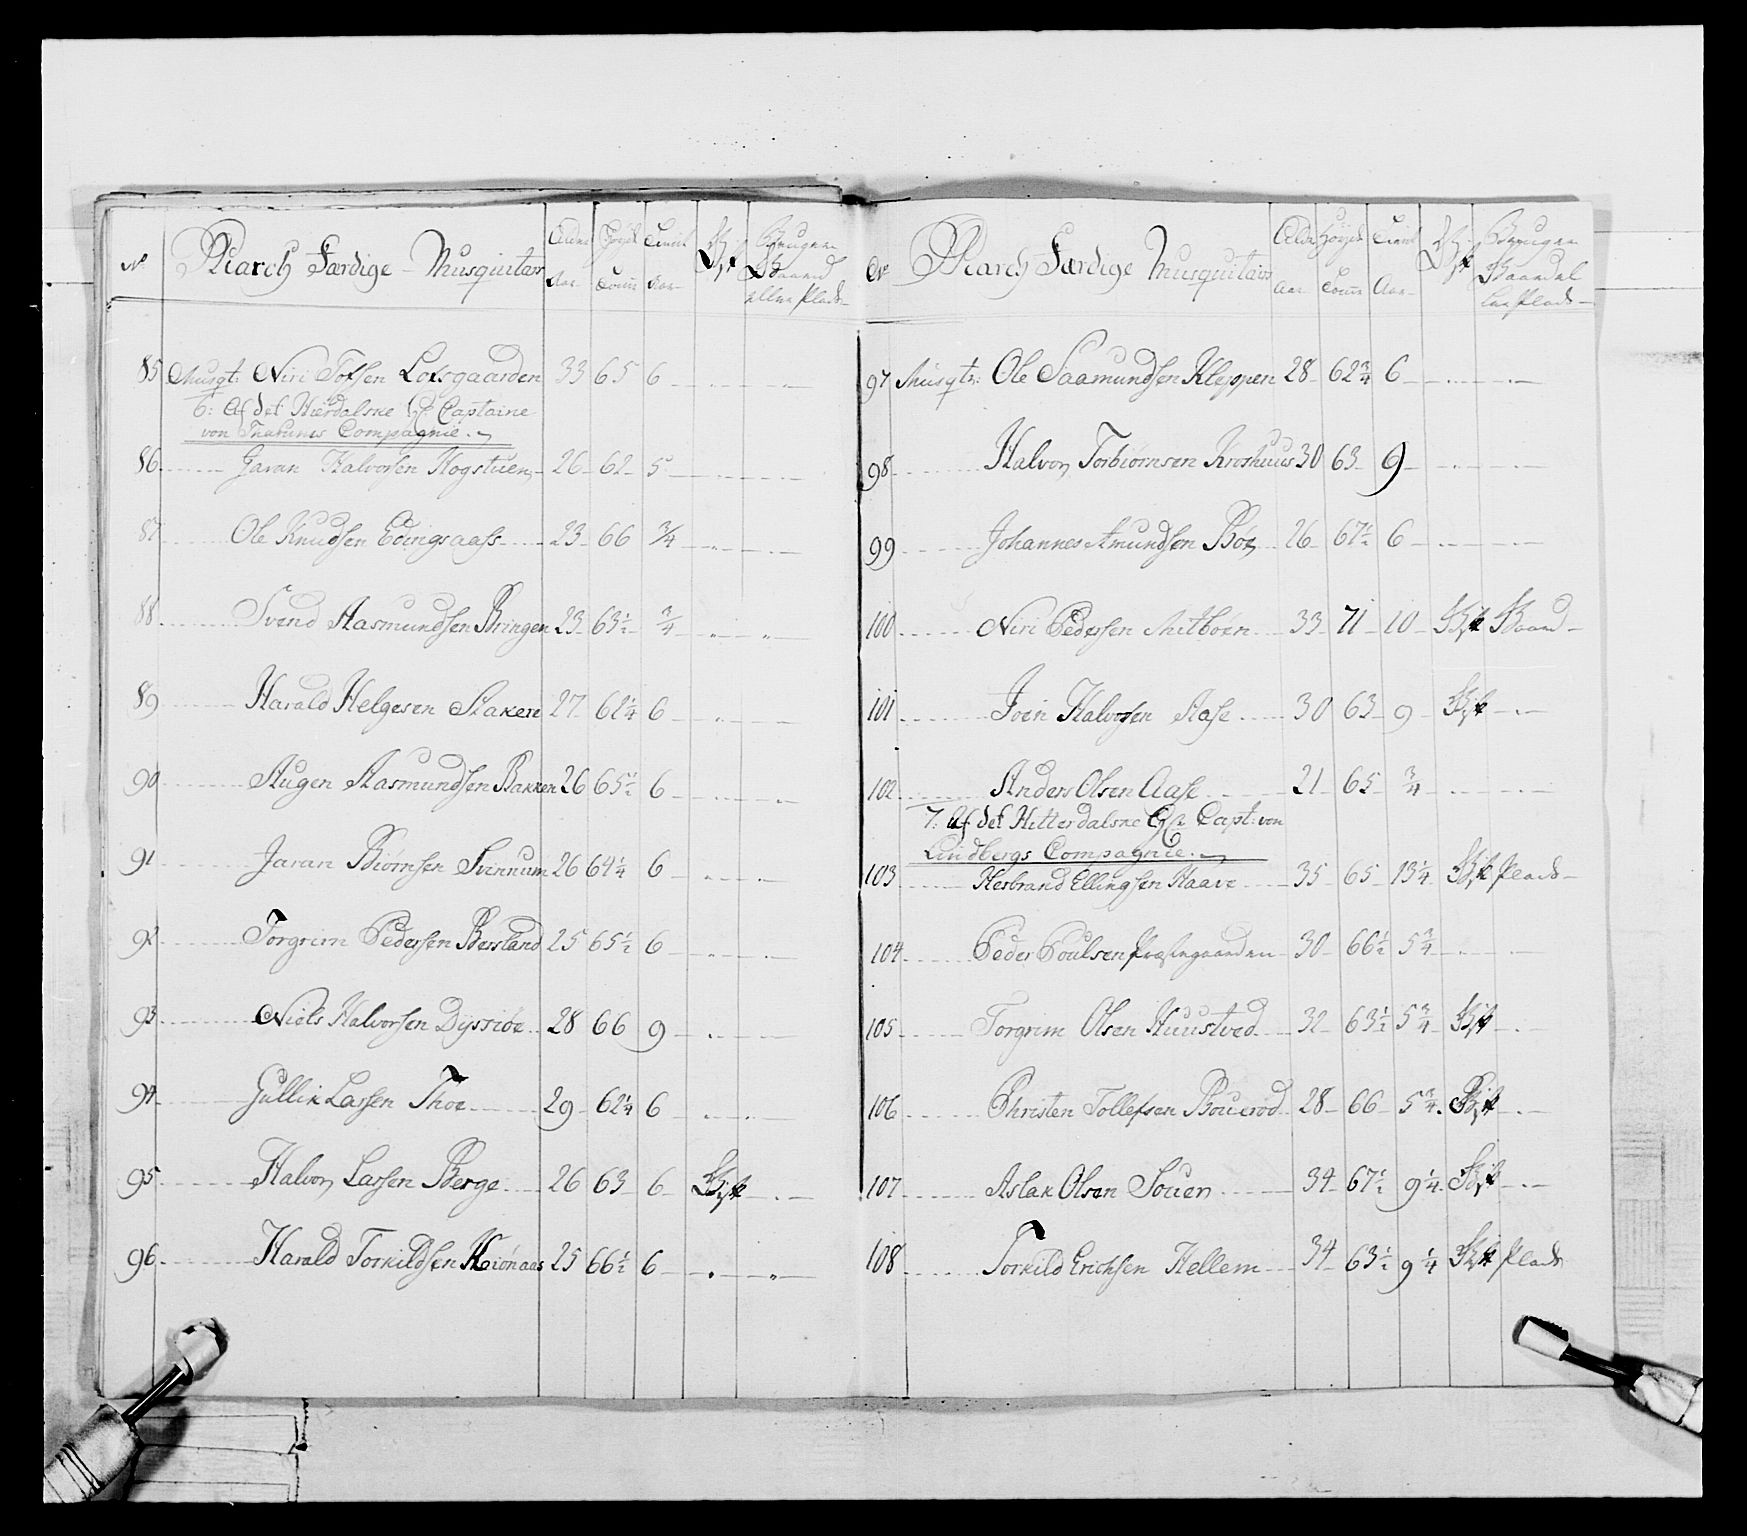 No March Færdige Musquitairs Alder Aar Høyde Tomr Tienist Aar Gift Bruger Gaard eller Plads
85 Musqt: Niri Tofsen Lofsgaarden 33 65 6
6: Af det Hierdalske Captaine
von Compagnie.
86 Jaran Halvorsen Hogstuen 26 62 5
87 Ole Knudsen Edingsaass 23 66 3/4
88 Svend Aasmundsen Bringen 23 63 1/2 3/4
89 Harald Helgesen Staken 27 62 1/4 6
90 Augen Aasmundsen Bakken 26 65 1/2 6
91 Jaran Biørnsen Svinnum 26 64 1/4 6
92 Torgrim Pedersen Bersland 25 65 1/2 6
93 Niels Halvorsen Dyssiøe 28 66 9
94 Gullik Larsen Thoe 29 62 1/4 6
95 Halvor Larsen Berge 26 63 6 Gift
96 Harald Torkildsen Kiønaas 25 66 1/2 6
No March Færdige Musquitairs Alder Aar Høyde Tomr Tienist Aar Gift Bruger Gaard el ler Plads
97 Musqtr: Ole Saamundsen Kleppen 28 62 3/4 6
98 Halvor Torbiørnsen Kroshuus 30 63 9
99 Johannes Amundsen Bøe 26 67 1/2 6
100 Niri Pedersen Mitbøen 33 71 10 Gift Gaard
101 Joen Halvorsen Aase 30 63 9 Gift
102 Anders Olsen Aase 21 65 3/4
7: Af det Hitterdalske Capt: von
Lindbergs Compagnie.
103 Herbrand Ellingsen Haave 35 65 13 1/4 Gift Plads
104 Peder Poulsen Præstegaarden 30 66 1/2 5 3/4
105 Torgrim Olsen Huustved 32 63 1/2 5 3/4 Gift
106 Christen Tollefsen Bouerød 28 66 5 3/4 Gift
107 Aslak Olsen Souen 34 67 1/2 9 1/4 Gift
108 Torkild Erichsen Hellem 34 63 1/2 9 1/4 Gift Plads